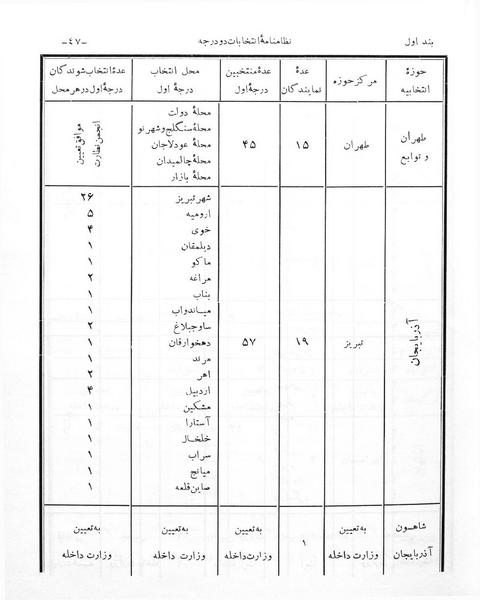 بند اول
نظامنامهٔ انتخابات دو درجه
-۴۷-
حوزهٔ انتخابیه
مرکز حوزه
عدهٔ نمایندگان
عدهٔ منتخبین درجهٔ اول
محل انتخاب درجهٔ اول
عدهٔ انتخاب شوندگان درجهٔ اول در هر محل
طهران و توابع
طهران
۱۵
۴۵
محلهٔ دولت
محلهٔ سنگلج و شهر نو
محلهٔ عودلاجان
محلهٔ چالمیدان
محلهٔ بازار
موافق تعیین انجمن نظارت
آذربایجان
تبریز
۱۹
۵۷
شهر تبریز ۲۶
ارومیه ۵
خوی ۴
دیلمقان ۱
ماکو ۱
مراغه ۲
بناب ۱
میاندواب ۱
ساوجبلاغ ۲
دهخوارقان ۱
مرند ۱
اهر ۲
اردبیل ۴
مشکین ۱
آستارا ۱
خلخال ۱
سراب ۱
میانج ۱
صاین قلعه ۱
شاهسون آذربایجان
به تعیین وزارت داخله
۱
به تعیین وزارت داخله
به تعیین وزارت داخله
به تعیین وزارت داخله